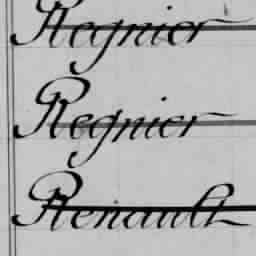 Regnier
Regnier
Renault